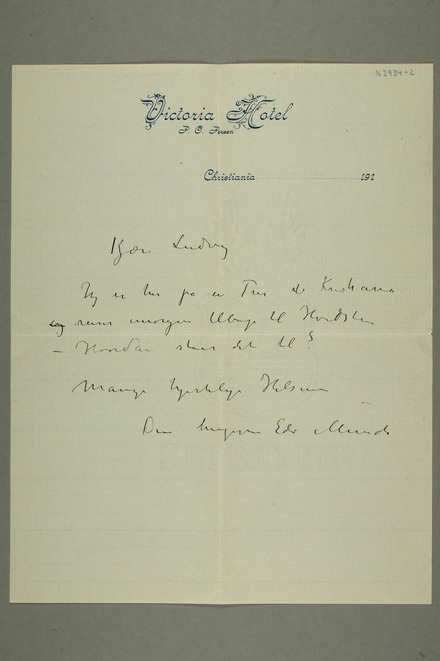 N 2934-2
Victoria Hotel
P. O. Persen
Christiania 191
Kjære Ludvig
Jeg er her på en Tur til Kristiania
og reiser imorgen tilbage til Hvidsten
– Hvordan står det til?
Mange hjertelige Hilsener
Din hengivne Edv Munch